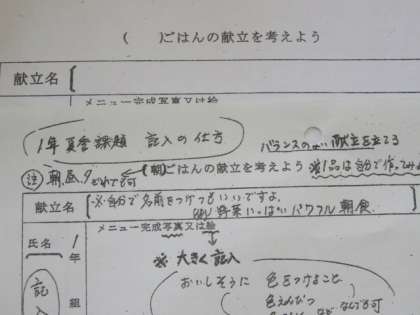 (　　)ごはんの献立を考えよう
献立名
メニュー完成写真又は絵
1年夏季課題 記入の仕方
バランスのよい献立を立てる
注 朝、昼、夕どれでも可
(朝)ごはんの献立を考えよう
1品は自分で作ってみ
献立名
※自分で名前をつけてもいいですよ。
野菜いっぱいパワフル朝食
氏名 1年 組
メニュー完成写真又は絵
※ 大きく記入
おいしそうに 色をつけること
色えんぴつ
など なんでも可
記入